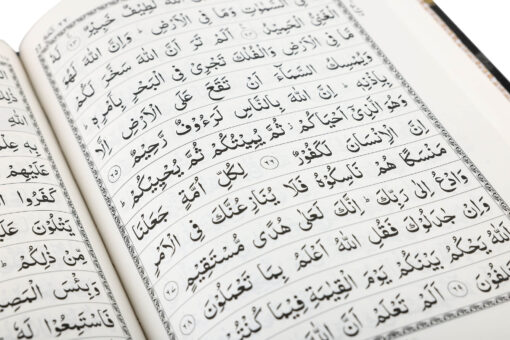 لَطِيفٌ خَبِيرٌ
السَّمٰوٰتِ وَمَا فِى الْاَرْضِ ؕ وَاِنَّ اللّٰهَ لَهُوَ
الْغَنِىُّ الْحَمِيْدُ ۝ اَلَمْ تَرَ اَنَّ اللّٰهَ سَخَّرَ لَكُمْ
مَّا فِى الْاَرْضِ وَالْفُلْكَ تَجْرِىْ فِى الْبَحْرِ بِاَمْرِهٖ ؕ
وَيُمْسِكُ السَّمَآءَ اَنْ تَقَعَ عَلَى الْاَرْضِ اِلَّا
بِاِذْنِهٖ ؕ اِنَّ اللّٰهَ بِالنَّاسِ لَرَءُوْفٌ رَّحِيْمٌ ۝۶۵
وَهُوَ الَّذِىْٓ اَحْيَاكُمْ ثُمَّ يُمِيْتُكُمْ ثُمَّ يُحْيِيْكُمْ ؕ
اِنَّ الْاِنْسَانَ لَكَفُوْرٌ ۝۶۶ لِكُلِّ اُمَّةٍ جَعَلْنَا
مَنْسَكًا هُمْ نَاسِكُوْهُ فَلَا يُنَازِعُنَّكَ فِى الْاَمْرِ
وَادْعُ اِلٰى رَبِّكَ ؕ اِنَّكَ لَعَلٰى هُدًى مُّسْتَقِيْمٍ ۝۶۷
وَاِنْ جَادَلُوْكَ فَقُلِ اللّٰهُ اَعْلَمُ بِمَا تَعْمَلُوْنَ ۝۶۸
اَللّٰهُ يَحْكُمُ بَيْنَكُمْ يَوْمَ الْقِيٰمَةِ فِيْمَا كُنْتُمْ
تَخْتَلِفُوْنَ ۝۶۹ اَلَمْ تَعْلَمْ اَنَّ اللّٰهَ
بِهٖ عِلْمٌ
عَلَيْهِمْ
كَفَرُوا
يَتْلُوْنَ
مِّنْ ذٰلِكُمْ ؕ
وَبِئْسَ الْمَصِيْرُ
فَاسْتَمِعُوْا لَهٗ